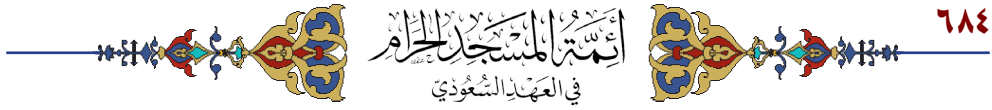 ٦٨٤
أئمة المسجد الحرام
في العهد السعودي